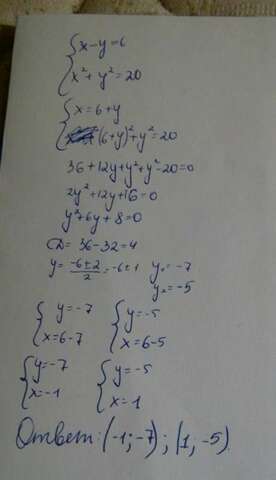 {x-y=6
x²+y²=20
{x=6+y
(6+y)²+y²=20
36+12y+y²+y²-20=0
2y²+12y+16=0
y²+6y+8=0
D=36-32=4
y=(-6±2)/2=-6±1 y₁=-7
y₂=-5
{y=-7 {y=-5
x=6-7 x=6-5
{y=-7 {y=-5
x=-1 x=1
Ответ: (-1;-7); (1;-5)